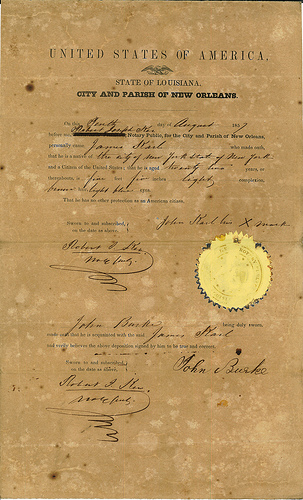 UNITED STATES OF AMERICA,
STATE OF LOUISIANA,
CITY AND PARISH OF NEW ORLEANS.
On this Tenth day of August 185
before me, Robert Joseph Ker Notary Public, for the City and Parish of New Orleans,
personally came James who made oath,
that he is a native of the city of New York state of New York
and a Citizen of the United States; that he is aged Twenty years, or
thereabouts, is five feet inches light complexion,
brown hair light blue eyes.
That he has no other protection as an American citizen.
Sworn to and subscribed,
on the date as above,
John his X mark
Robert J. Ker
Not. Pub.
John Burke being duly sworn,
made oath that he is acquainted with the said James
and verily believes the above deposition signed by him to be true and correct.
Sworn to and subscribed
on the date as above,
John Burke
Robert J. Ker
Not. Pub.